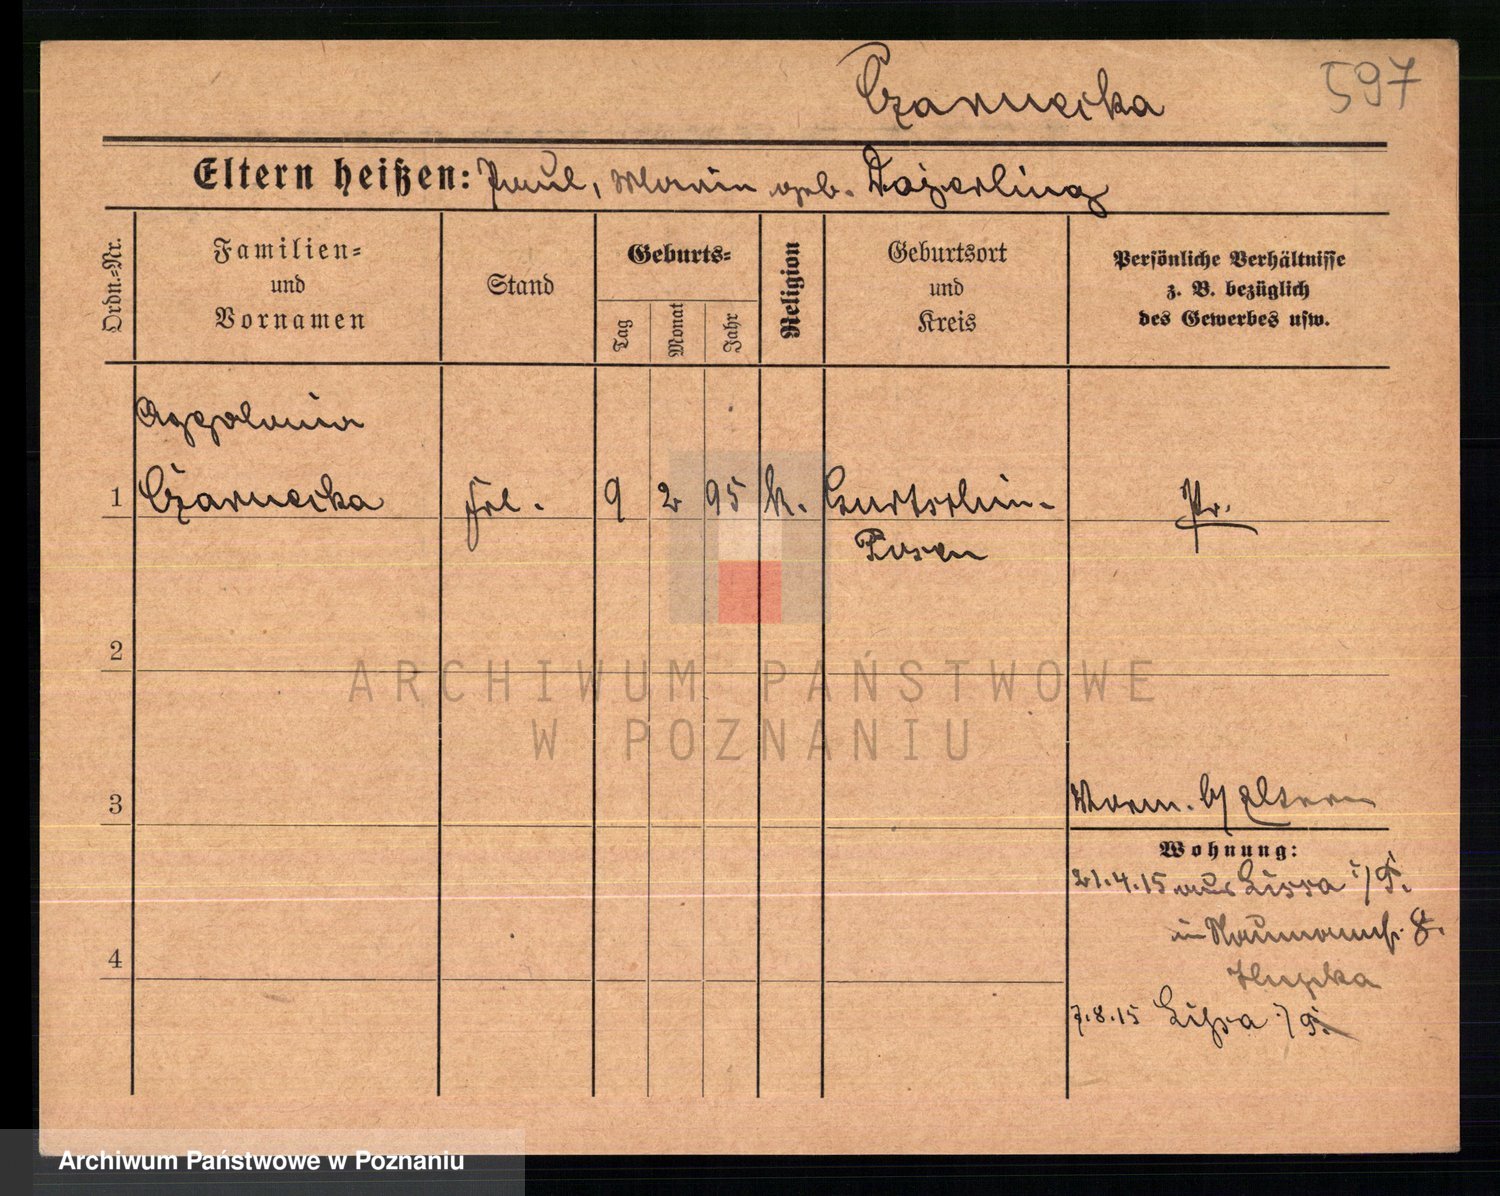 Czarnecka
597
Eltern heißen: Paul, Marie geb. Dajerling
Ordn.=Nr.
Familien=
und
Vornamen
Stand
Geburts=
Tag
Monat
Jahr
Religion
Geburtsort
und
Kreis
Persönliche Verhältnisse
z. B. bezüglich
des Gewerbes usw.
Appolonia
1 Czarnecka Frl. 9 2 95 k. Gurtschin-
Posen
Pr.
2
3
Vorm. b/ Eltern
Wohnung:
21.4.15 aus Lissa i/P.
in Naumannstr. 8.
Hupka
4
7.8.15 Lissa i/P.
ARCHIWUM PAŃSTWOWE
W POZNANIU
Archiwum Państwowe w Poznaniu